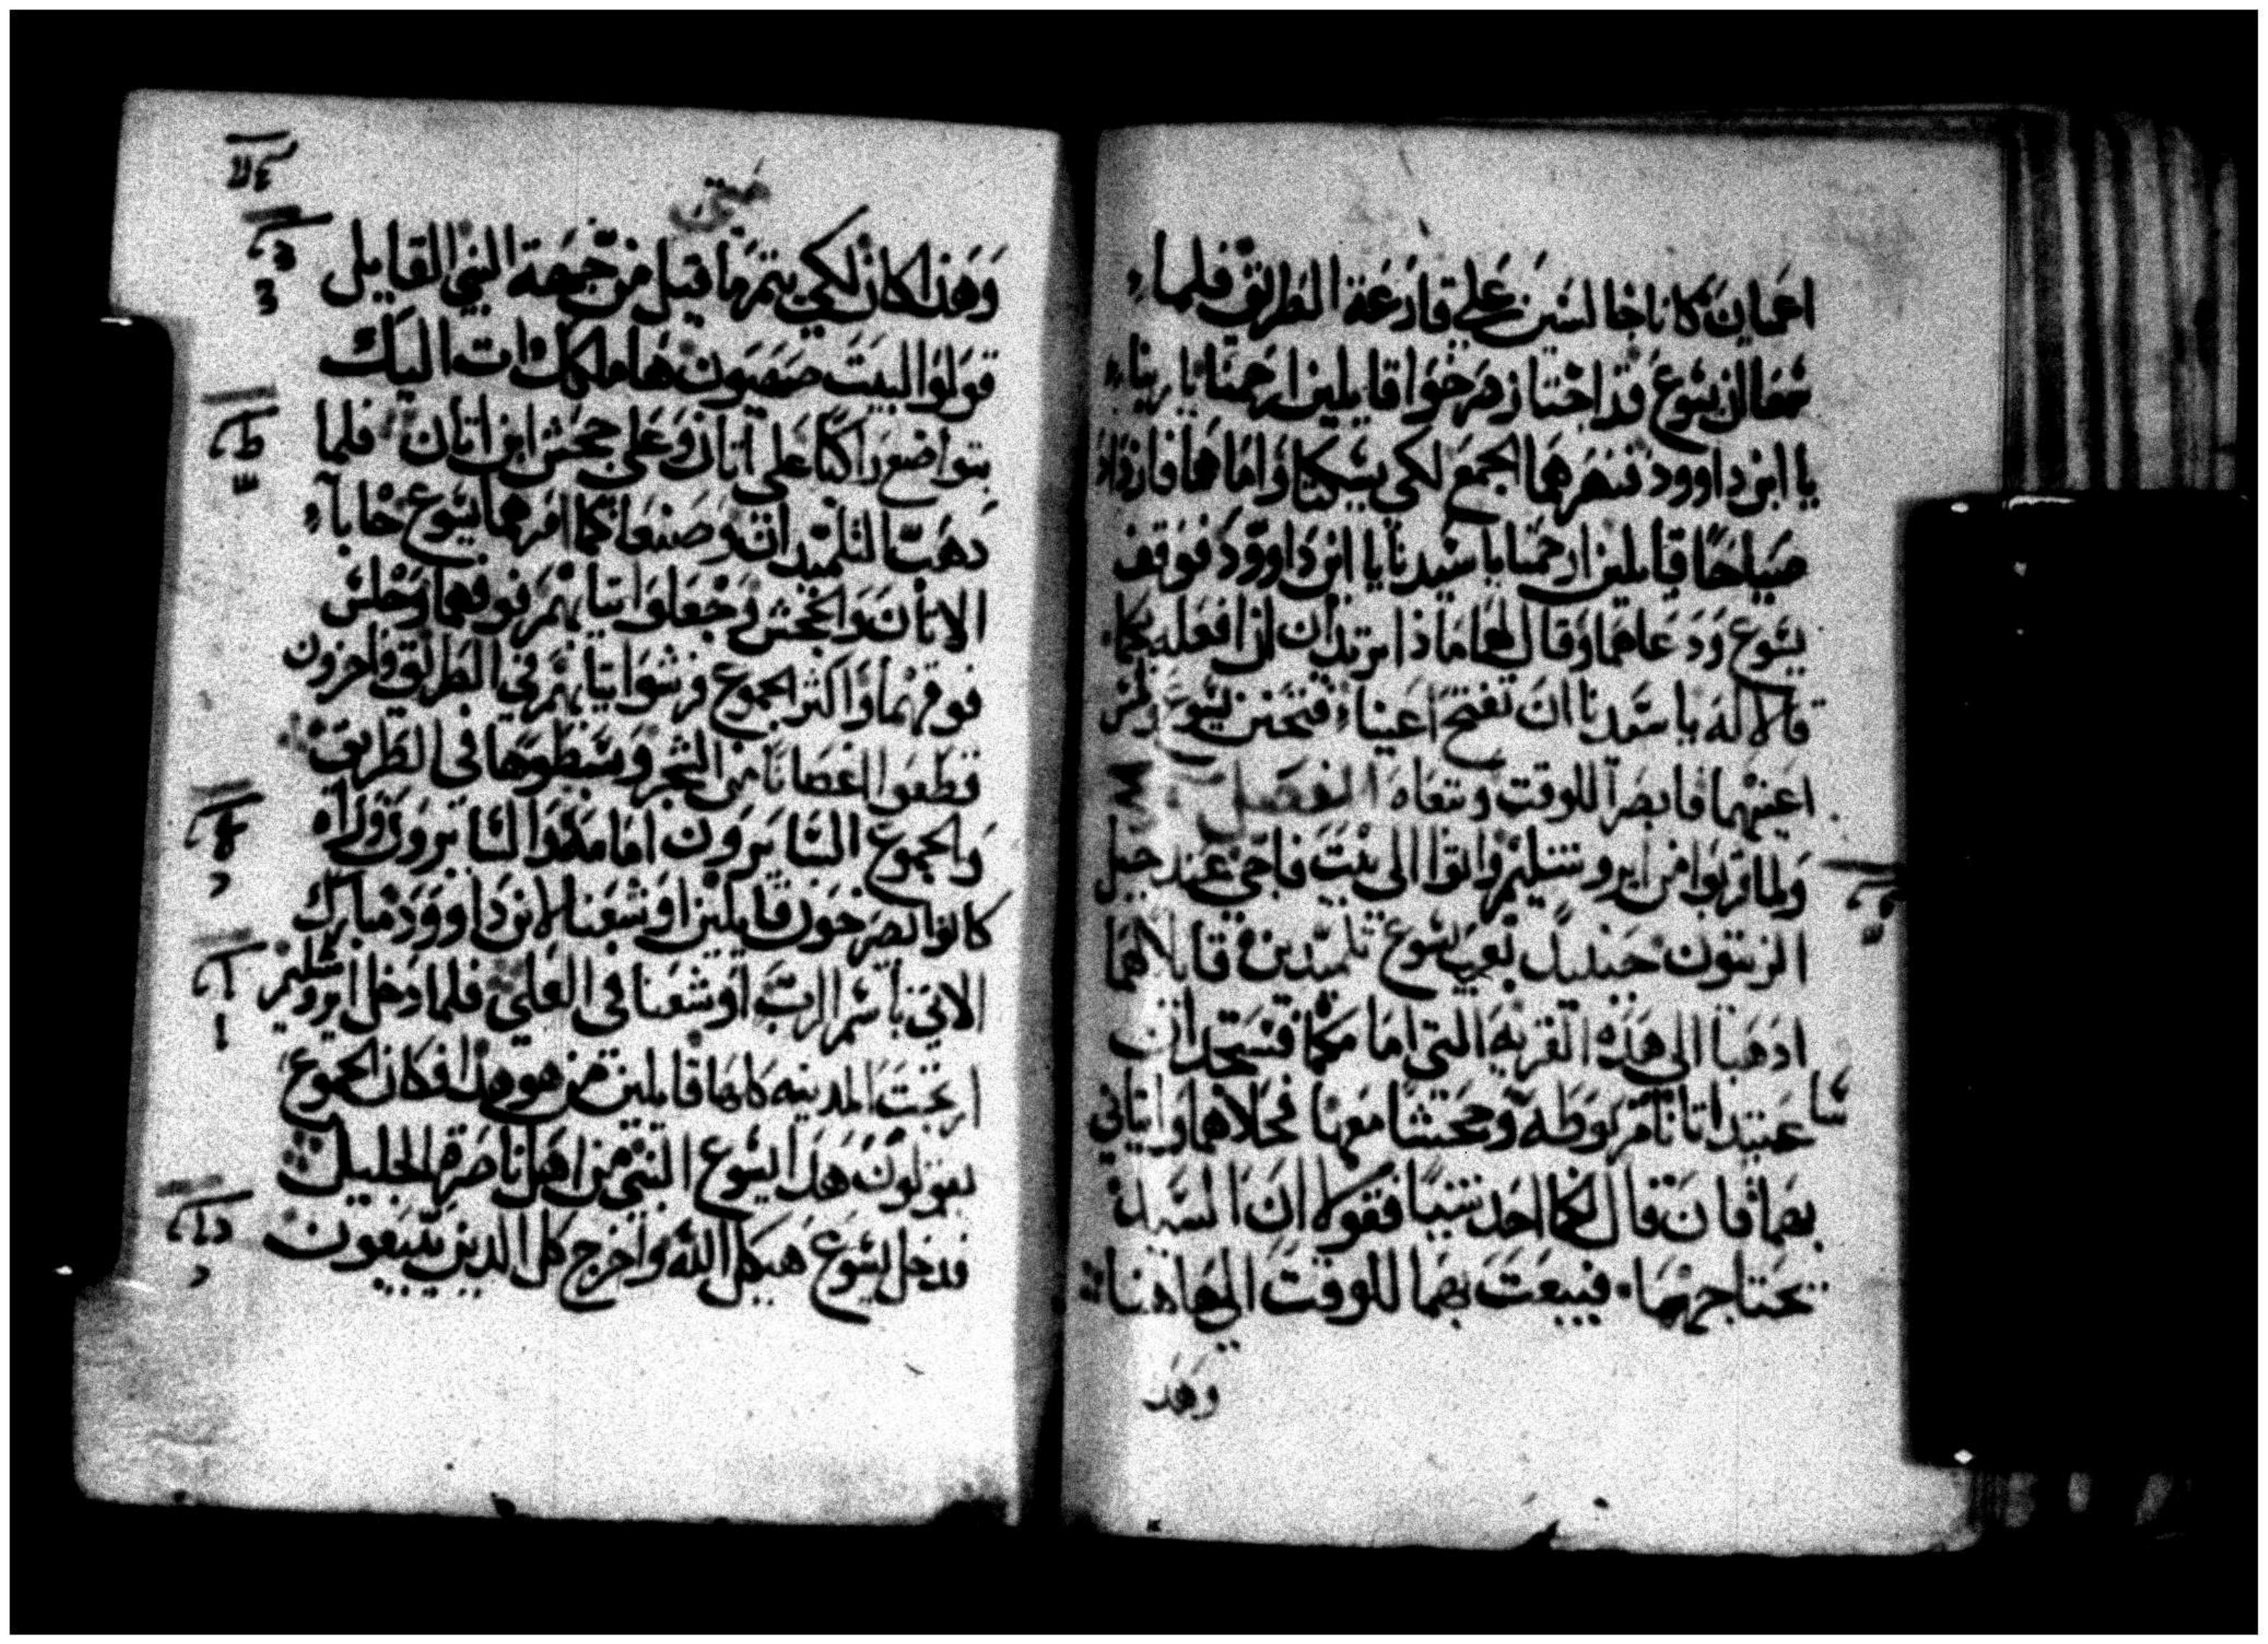 اعميان كانا جالسين علي قارعة الطريق فلما
سمعا ان يسوع قد اجتاز صرخوا قايلين ارحمنا يا ربنا
يا ابن داوود فنهرهما الجمع لكي يسكتا واما هما فازداد
صياحا قايلين ارحمنا يا سيدنا يا ابن داوود فوقف
يسوع ودعاهما وقال لهما ماذا تريدان ان افعله بكما
قالا له يا سيدنا ان تفتح اعيننا فتحنن يسوع ولمس
اعينهما فابصرا للوقت وتبعاه الفصل
ولما قربوا من ايروشليم واتوا الى بيت فاجي عند جبل
الزيتون حينيد بعث يسوع تلميدين قايلا لهما
ادهبا الى هذه القرية التي امامكما فستجدان
عنيدا اتانا مربوطة وجحشا معها فحلاهما واتياني
بهما فان قال لكما احد شيا فقولا ان السيد
يحتاجهما فيبعت بهما للوقت الى هاهنا
وهد
متى
وهذا كان لكي يتم ما قيل من جهة النبي القايل
قولوا لبيت صهيون ها ملكك ات اليك
بتواضع راكبا على اتان وعلى جحش ابن اتان فلما
دهبا التلميدان وصنعا كما امرهما يسوع جابا
الاتان والجحش وجعلوا تيابهم فوقهما وجلس
فوقهما واكثر الجموع فرشوا تيابهم في الطريق واخرون
قطعوا اغصانا من الشجر وبسطوها في الطريق
والجموع السايرون امامه والسايرون وراه
كانوا يصرخون قايلين اوشعنا لابن داوود مبارك
الاتي باسم الرب اوشعنا في العلي فلما دخل ايروشليم
ارتجت المدينه كلها قايلين من هو هدا فكان الجموع
يقولون هدا يسوع النبي من اهل ناصرة الجليل
فدخل يسوع هيكل الله واخرج كل الدين يبيعون